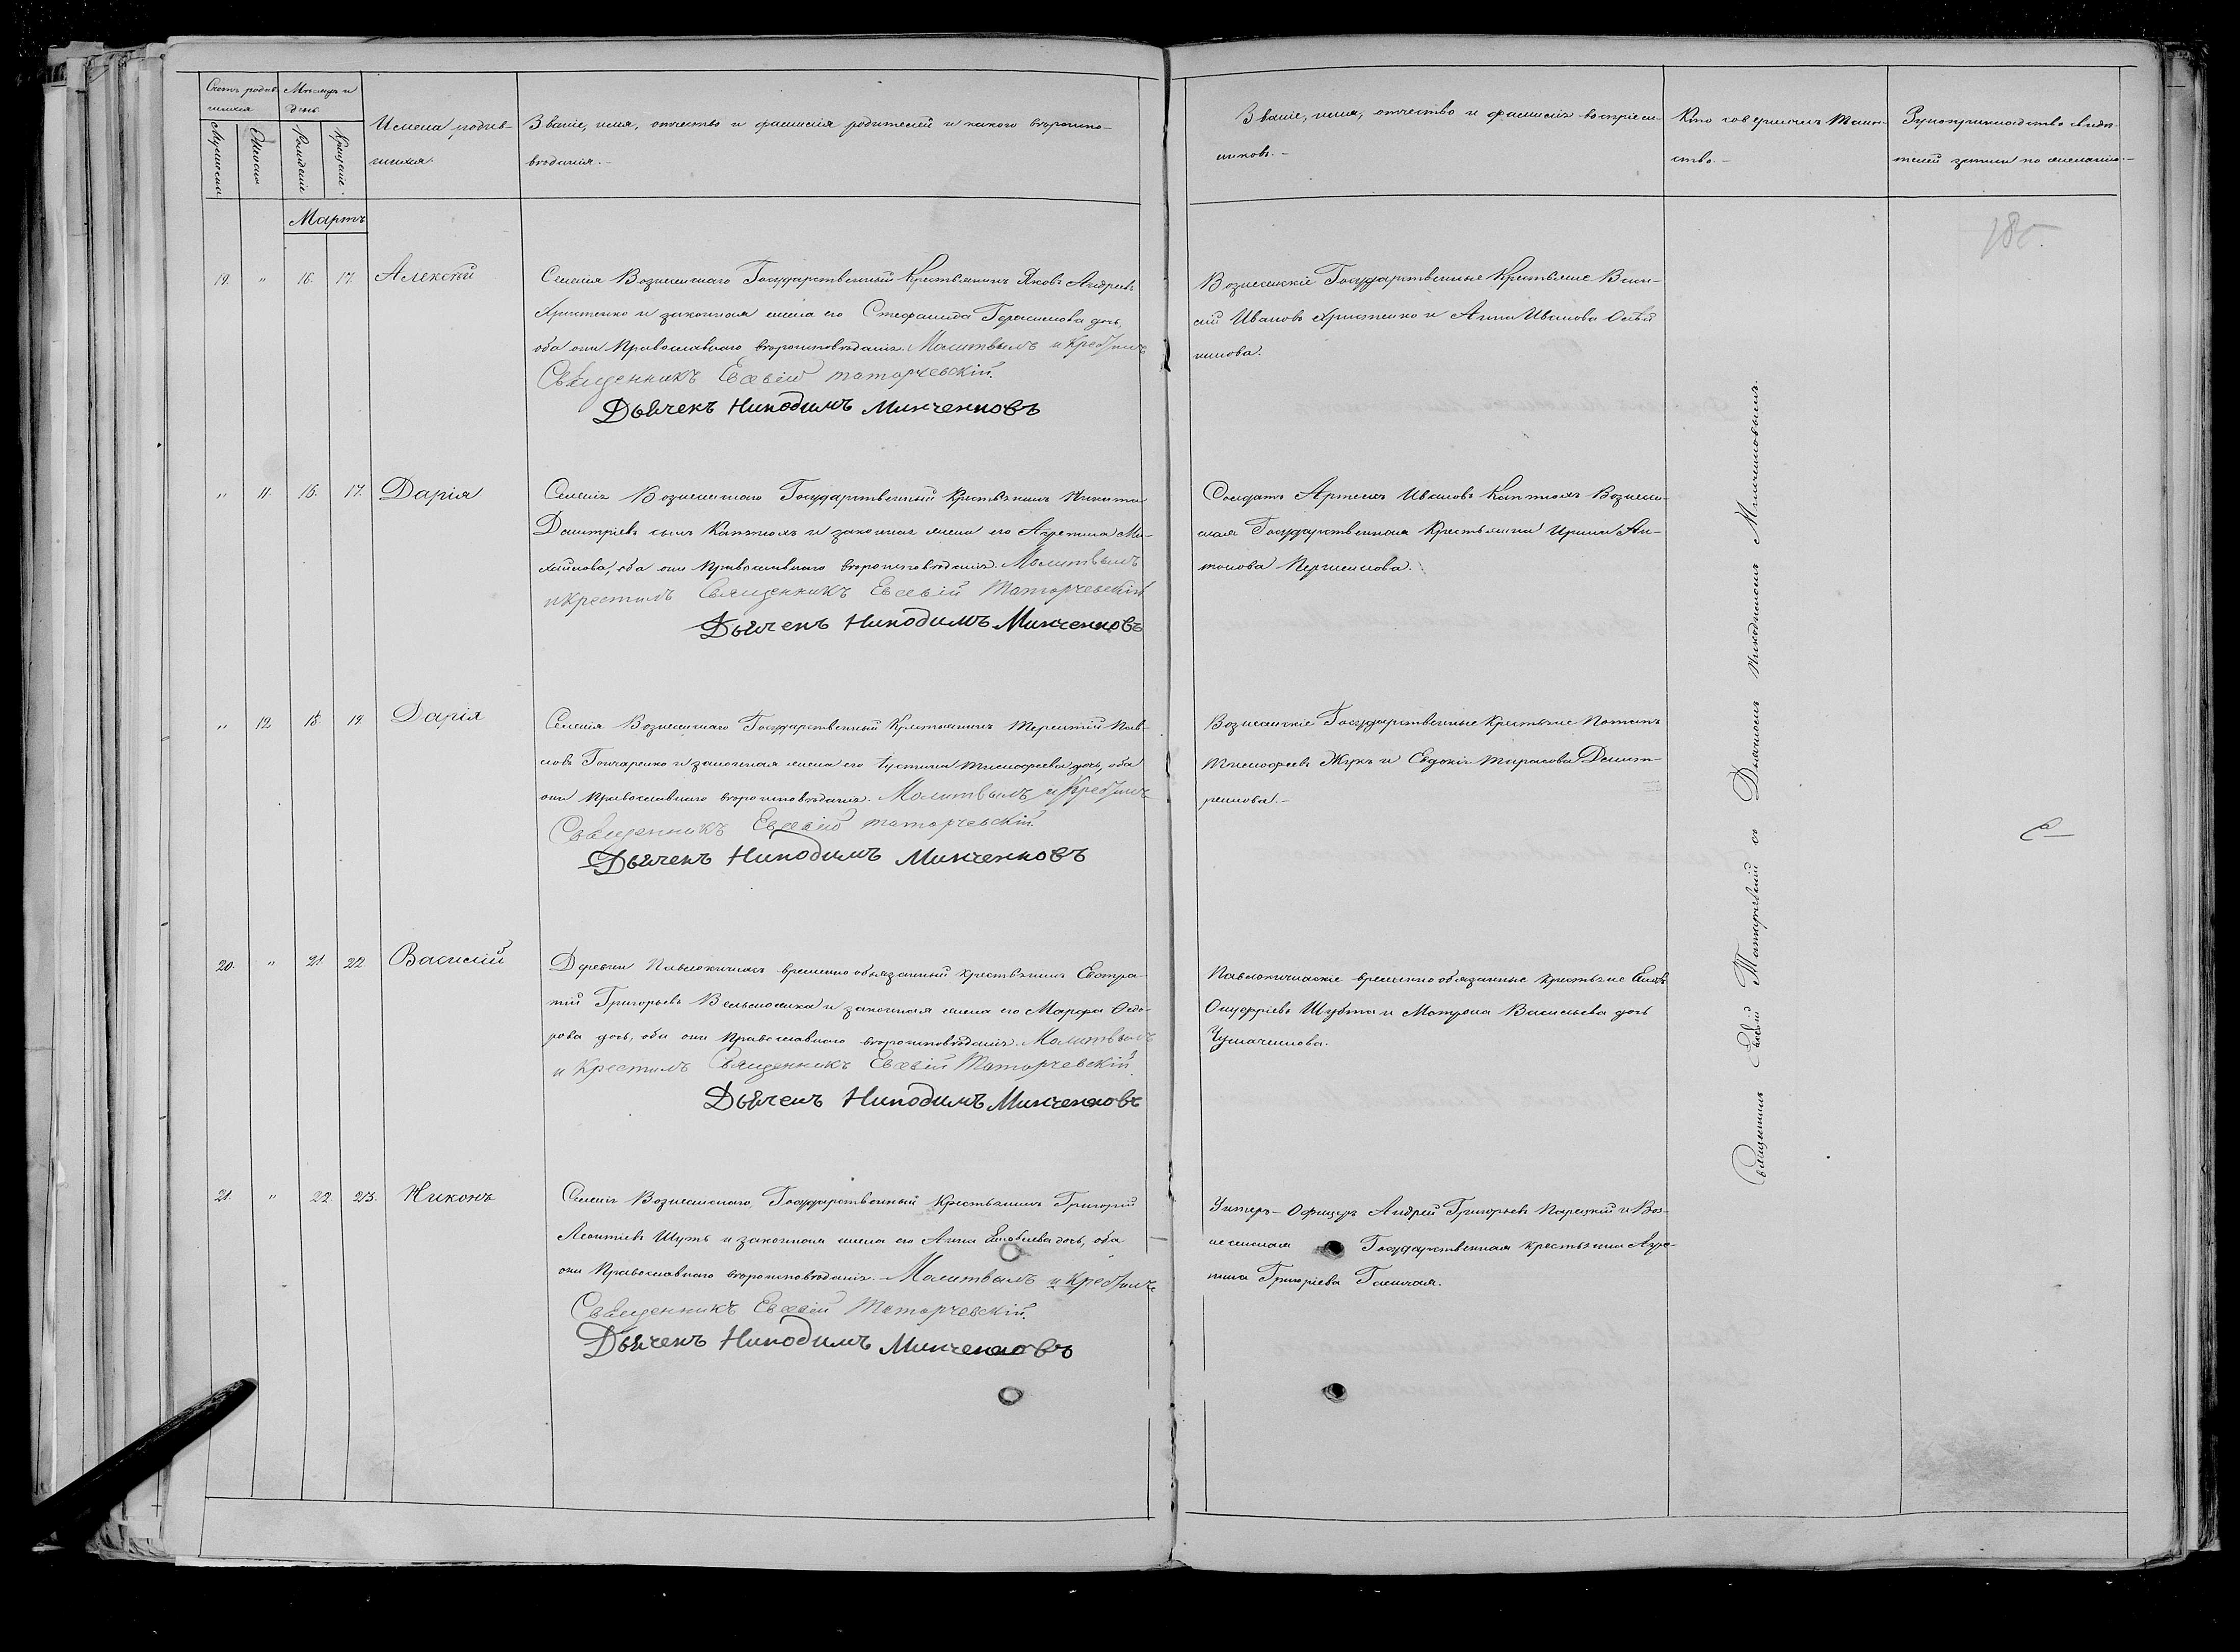 Счетъ родив-
шихся
Мѣсяцъ и
день.
Мужеска
Женска
Рожденіе
Крещеніе.
Имена родив-
шихся.
Званіе, имя, отчество и фамилія родителей и какого вѣроиспо-
вѣданія.-
Званіе, имя, отчество и фамилія воспріем-
никовъ.-
Кто совершалъ таин-
ство.-
Рукоприкладство свидѣ-
телей записи по желанію.-
Мартъ
180.
19. " 16. 17. Алексѣй
Селенія Вознесенскаго Государственный Крестьянинъ Яковъ Андреевъ
Христенко и законная жена его Стефанида Герасимова дочь,
оба они Православнаго вѣроисповѣданія. Молитвилъ и крестилъ
Священникъ Евсевій Таторчевскій.
Дьячекъ Никодимъ Минченковъ
Вознесенскіе Государственные Крестьяне Васи-
лій Ивановъ Христенко и Анна Иванова
" 11. 16. 17. Дарія
Селенія Вознесенскаго Государственный Крестьянинъ Никита
Дмитріевъ сынъ Каптюхъ и законная жена его Агрепина Ми-
хайлова, оба они Православнаго вѣроисповѣданія. Молитвилъ
и крестилъ Священникъ Евсевій Таторчевскій
Дьячекъ Никодимъ Минченковъ
Солдатъ Артемъ Ивановъ Каптюхъ Вознесен-
ская Государственная Крестьянка Ирина Ан-
тонова
" 12 18. 19. Дарія
Селенія Вознесенскаго Государственный Крестьянинъ Терентій Пав-
ловъ Гончаренко и законная жена его Іустина Тимофеева дочь, оба
они Православнаго вѣроисповѣданія. Молитвилъ и крестилъ
Священникъ Евсевій Таторчевскій.
Дьячекъ Никодимъ Минченковъ
Вознесенскіе Государственные Крестьяне Потапъ
Тимофеевъ Жукъ и Евдокія Тарасова Демит-
ренкова.-
20. " 21 22 Василій
Деревни временно обязанный крестьянинъ Евстра-
тій Григорьевъ и законная жена его Марфа Ѳедо-
рова дочь, оба они Православнаго вѣроисповѣданія. Молитвилъ
и крестилъ Священникъ Евсевій Таторчевскій.
Дьячекъ Никодимъ Минченковъ
временно обязанные крестьяне
Онуфріевъ Шубка и Матрона Васильева дочь
Чумаченкова.
21. " 22. 23. Никонъ
Селенія Вознесенскаго Государственный Крестьянинъ Григорій
Леонтіевъ Шуть и законная жена его Анна дочь, оба
они Православнаго вѣроисповѣданія.- Молитвилъ и крестилъ
Священникъ Евсевій Таторчевскій.
Дьячекъ Никодимъ Минченковъ
Унтеръ-Офицеръ Андрей Григорьевъ и Воз-
несенская Государственная крестьянка Агре-
пина Григоріева
Священникъ Евсевій Таторчевскій съ Дьячкомъ Никодимомъ Минченковымъ.